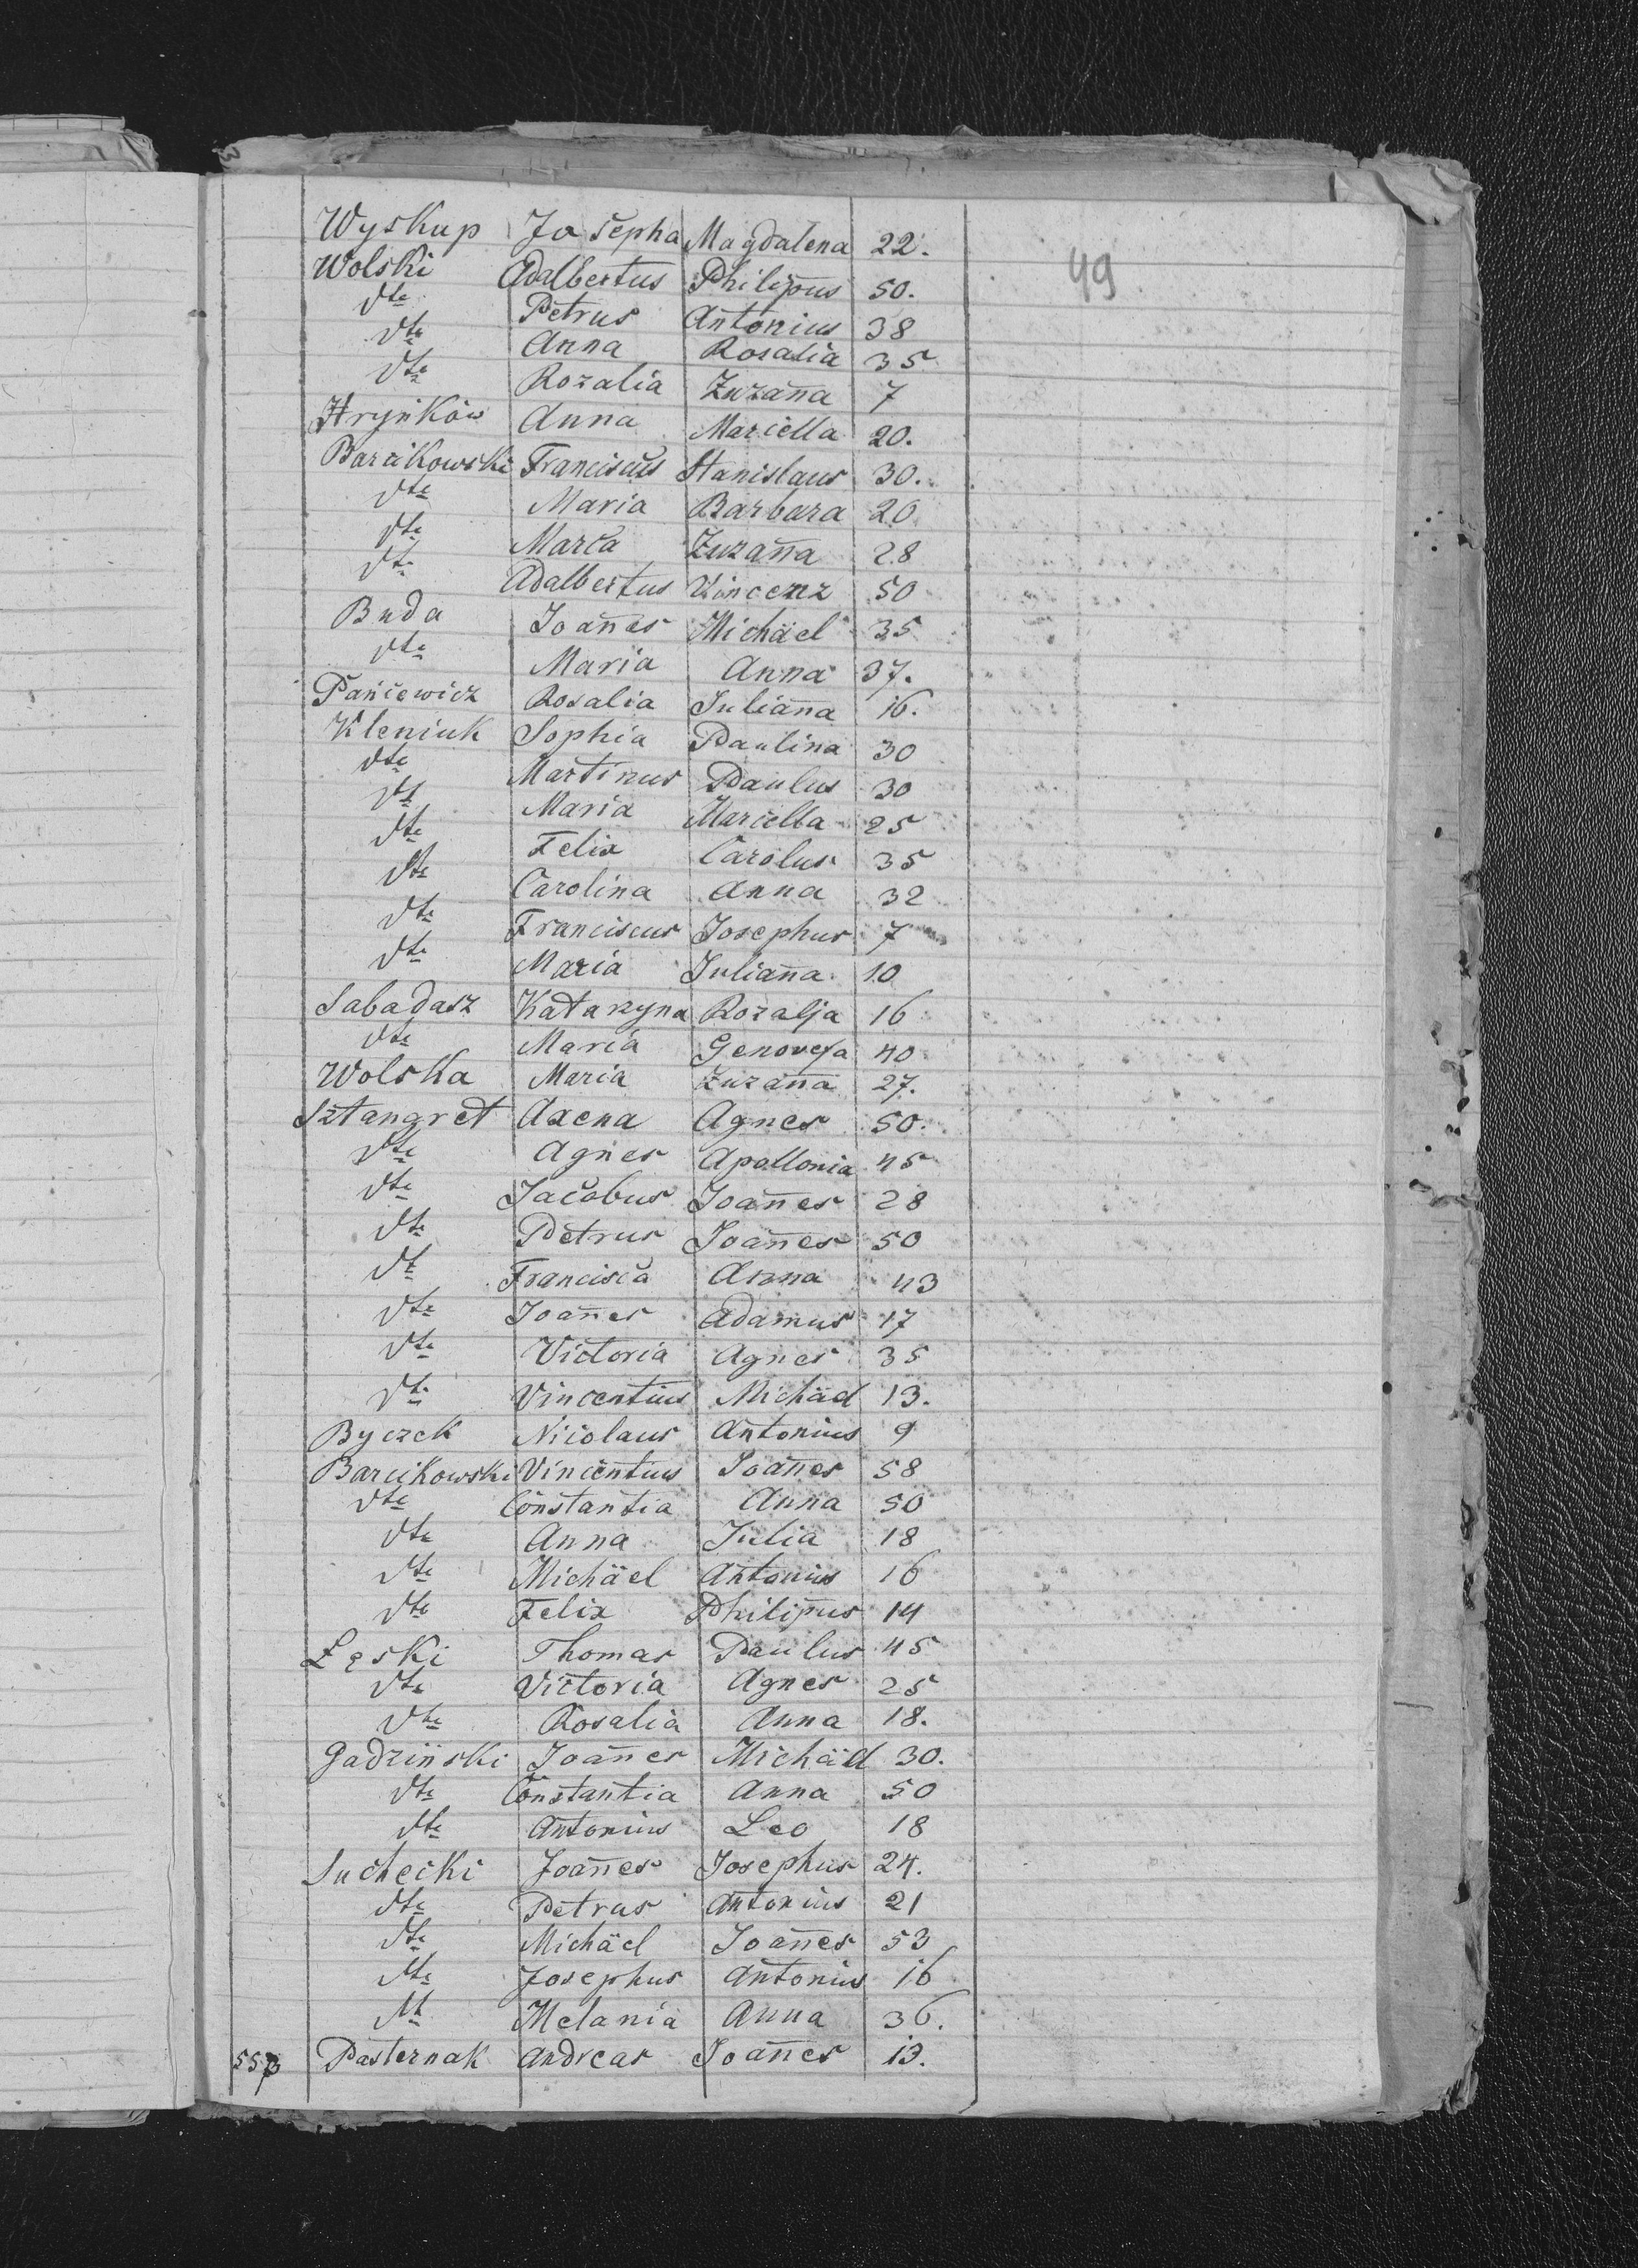 49
Wyskup Josepha Magdalena 22.
Wolski Adalbertus Philipus 50.
dte Petrus Antonius 38
dte Anna Rosalia 35
dte Rozalia Zuzanna 7
Hryńków Anna Mariella 20.
Barcikowski Franciscus Stanislaus 30.
dte Maria Barbara 20
dte Maria Zuzanna 28
dte Adalbertus Vincenz 50
Buda Joannes Michäel 35
dte Maria Anna 37.
Pańcewicz Rosalia Julianna 16.
Kleniuk Sophia Paulina 30
dte Martinus Paulus 30
dt Maria Mariella 25
dte Felix Carolus 35
dte Carolina Anna 32
dte Franciscus Josephus 7
dte Maria Julianna 10
Sabadasz Katarzyna Rozalja 16
dte Maria Genovefa 40
Wolska Maria Zuzanna 27.
Sztangret Axena Agnes 50.
dte Agnes Apollonia 45
dte Jacobus Joannes 28
dte Petrus Joannes 50
dt Francisca Anna 43
dte Joannes Adamus 17
dte Victoria Agnes 35
dte Vincentius Michäel 13.
Byczek Nicolaus Antonius 9
Barcikowski Vincentius Joannes 58
dte Constantia Anna 50
dte Anna Julia 18
dte Michäel Antonius 16
dte Felix Philipus 14
Łęski Thomas Paulus 45
dte Victoria Agnes 25
dte Rosalia Anna 18.
Gadziński Joannes Michäel 30.
dte Constantia Anna 50
dte Antonius Leo 18
Suchecki Joannes Josephus 24.
dte Petrus Antonius 21
dte Michäel Joannes 53
dte Josephus Antonius 16
dt Melania Anna 36.
Pasternak Andreas Joannes 13.